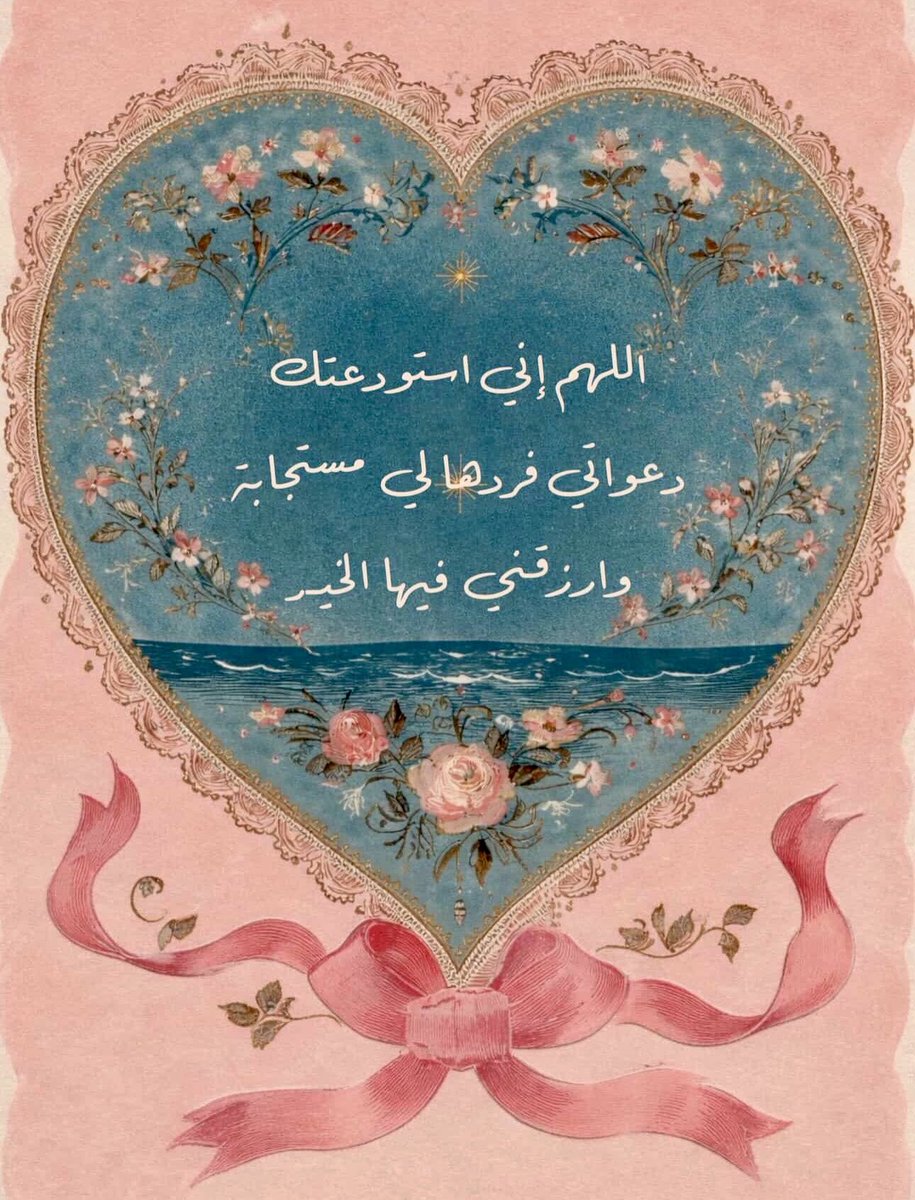 اللهم إني استودعتك
دعواتي فردها لي مستجابة
وارزقني فيها الخير